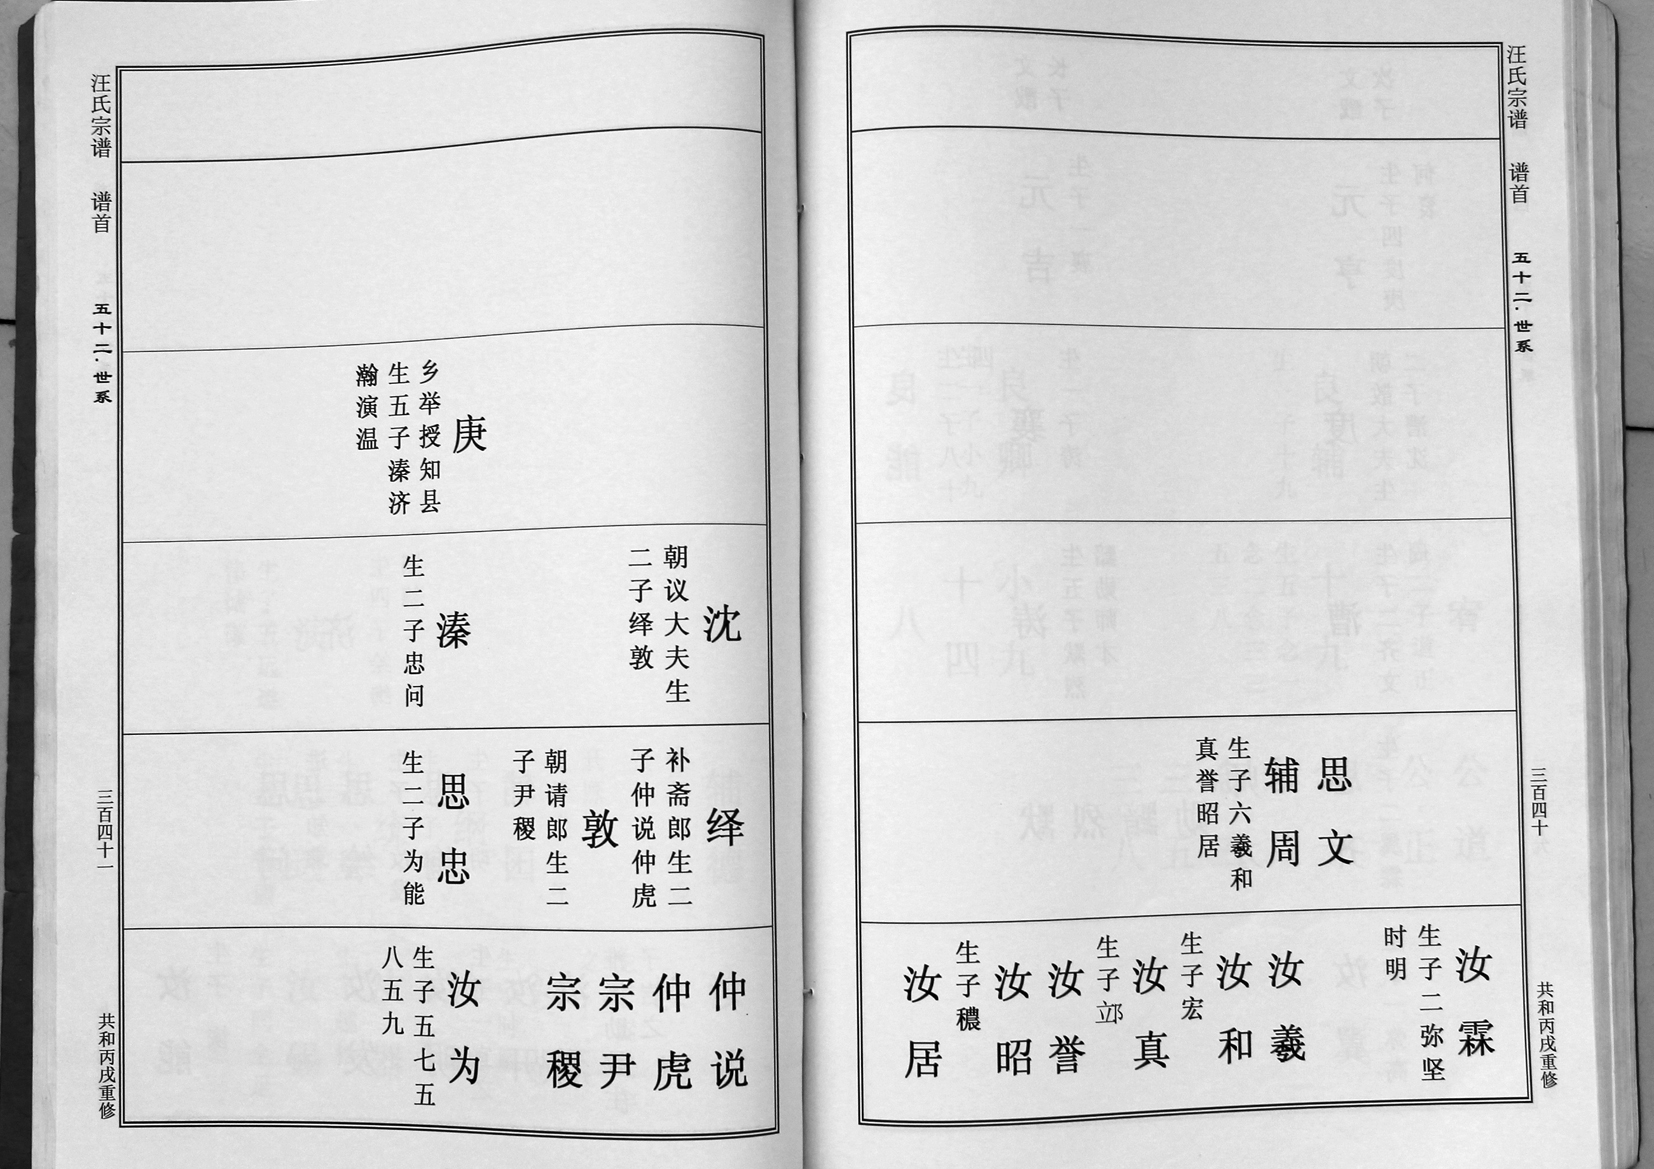 汪氏宗谱
谱首
五十二·世系
三百四十
共和丙戌重修
思文
辅周
生子六羲和
真誉昭居
汝霖
生子二弥坚
时明
汝羲
汝和
生子宏
汝真
生子
汝誉
汝昭
生子穠
汝居
庚
乡举授知县
生五子溱济
瀚演温
沈
朝议大夫生
二子绎敦
溱
生二子忠问
绎
补斋郎生二
子仲说仲虎
敦
朝请郎生二
子尹稷
思忠
生二子为能
仲说
仲虎
宗尹
宗稷
汝为
生子五七五
八五九
汪氏宗谱
谱首
五十二·世系
三百四十一
共和丙戌重修